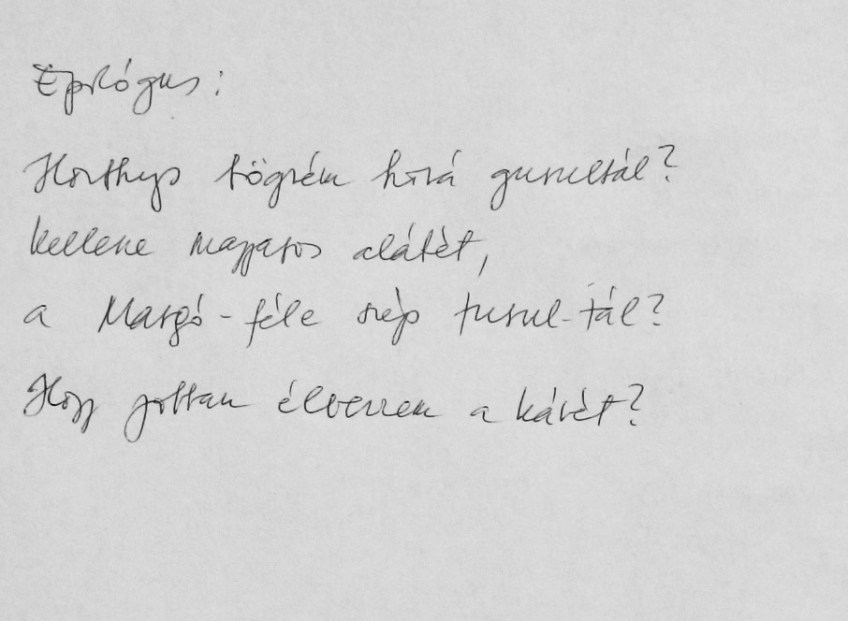 Epilógus:
Horthys bögrém hová gurultál?
kellene magyaros alátét,
a Margó-féle szép turul-tál?
Hogy jobban élvezzem a kávét?